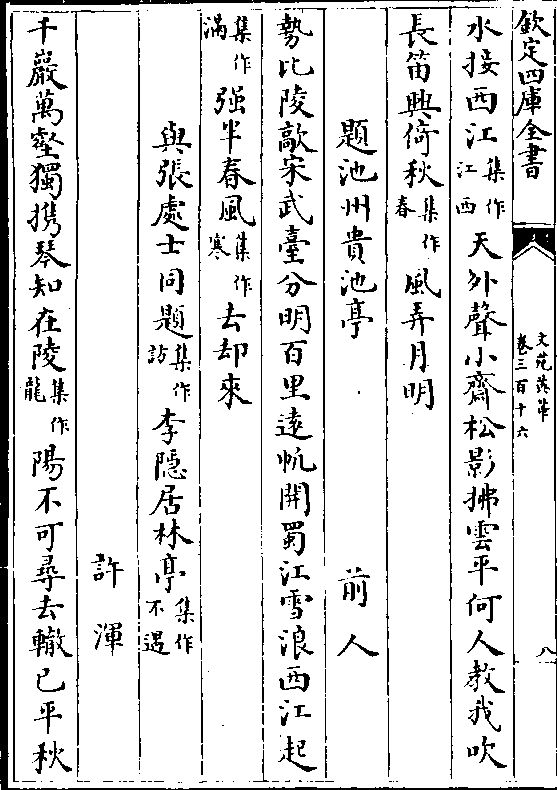 欽定四庫全書
文苑英華
卷三百十六
八
水接西江集作江西天外聲小齋松影拂雲平何人教我吹
長笛興倚秋集作春風弄月明
題池州貴池亭　前人
勢比陵敵宋武臺分明百里遠帆開蜀江雪浪西江起
集作滿强半春風集作寒去却來
與張處士同題集作訪李隱居林亭集作不遇
許渾
千巖萬壑獨攜琴知在陵集作龍陽不可尋去轍已平秋